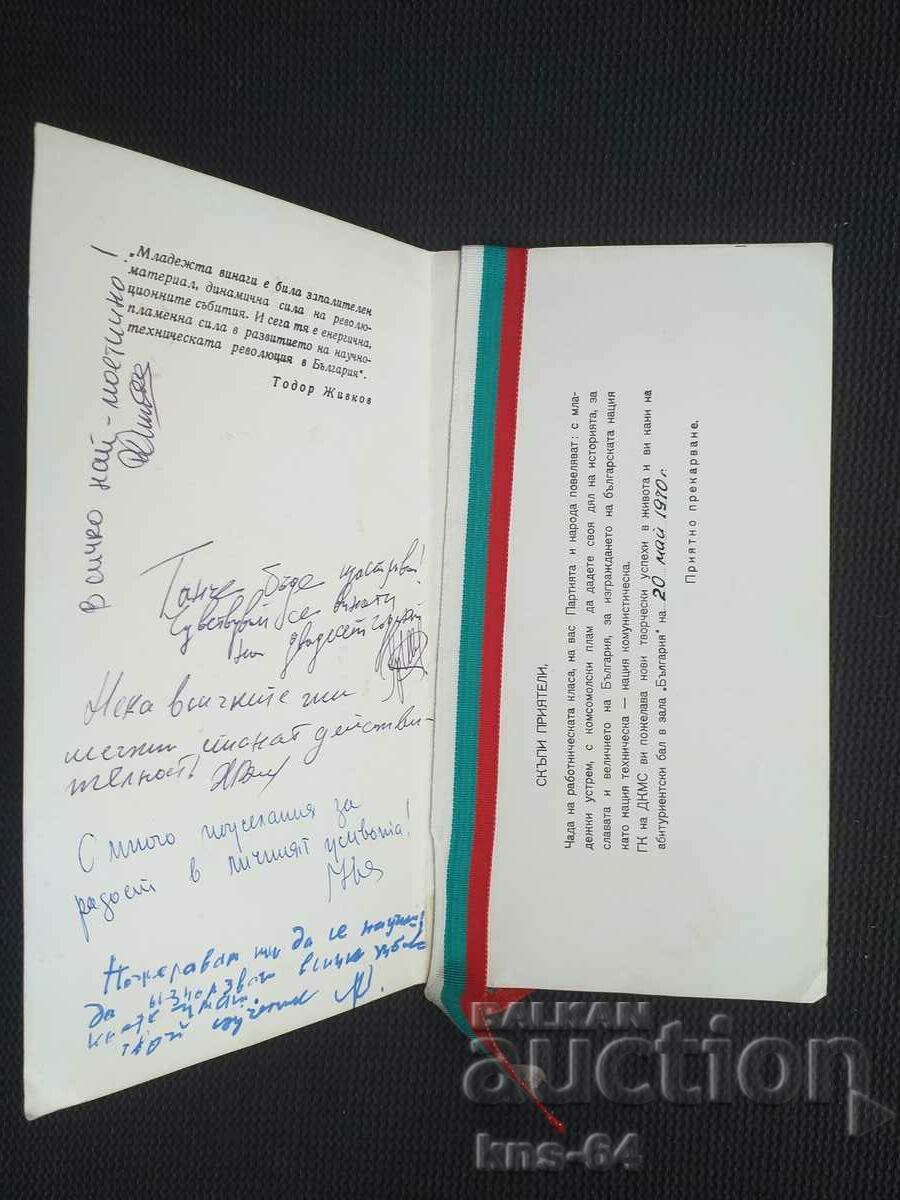 „Младежта винаги е била запалителен
материал, динамична сила на револю-
ционните събития. И сега тя е енергична,
пламенна сила в развитието на научно-
техническата революция в България“.
Тодор Живков
Всичко най-
бъде
Чувствувай се винаги
на
Нека всичките ти
мечти станат действи-
телност!
С много пожелания за
радост в личният живота!
Пожелавам ти да се научиш
да
СКЪПИ ПРИЯТЕЛИ,
Чада на работническата класа, на вас Партията и народа повеляват: с мла-
дежки устрем, с комсомолски плам да дадете своя дял на историята, за
славата и величието на България, за изграждането на българската нация
като нация техническа — нация комунистическа.
ГК на ДКМС ви пожелава нови творчески успехи в живота и ви кани на
абитуриентски бал в зала „България“ на 20 май 1970 г.
Приятно прекарване.
BALKAN
auction
kns-64